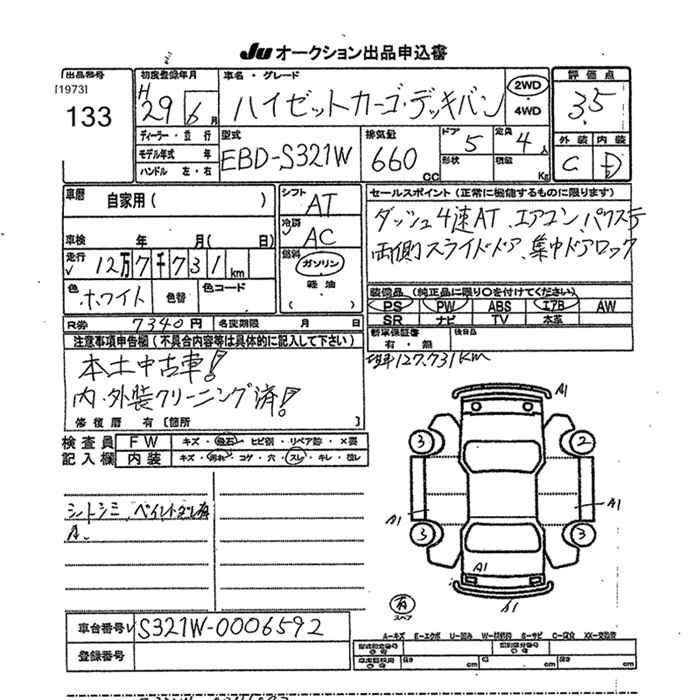 Ju オークション出品申込書
出品番号
[1973]
133
初度登録年月
H 29 6 月
車名・グレード
ハイゼットカーゴ・デッキバン
2WD
4WD
評価点
3.5
外装 内装
C D
ディーラー・並行
モデル年式 年
ハンドル 左・右
型式
EBD-S321W
排気量
660 CC
ドア 5
形状
定員 4 人
積載 Kg
車歴 自家用 ( )
車検 年 月( 日)
走行 12万7千731 km
色 ホワイト 色替 色コード
シフト AT
冷房 AC
燃料 ガソリン
軽油
( )
セールスポイント (正常に機能するものに限ります)
ダッシュ4速AT、エアコン、パワステ
両側スライドドア、集中ドアロック
装備品 (純正品に限り○を付けてください)
PS PW ABS エアB AW
SR ナビ TV 本革
R券 7340円 名変期限 月 日
新車保証書 有・無
後日品
注意事項申告欄 (不具合内容等は具体的に記入して下さい)
現車127.731KM
本土中古車!
内・外装クリーニング済!
修復歴 有 [箇所 ]
検査員記入欄
FW キズ・飛石・ヒビ割・リペア跡・×要
内装 キズ・汚れ・コゲ・穴・スレ・キレ・欠し
シートシミ、ペイントズレ有
A、
A1
3 2
A1 A1
3 3
A1
A1
有
スペア
車台番号 S321W-0006592
登録番号
A-キズ E-エクボ U-凹み W-補修跡 S-サビ C-腐食 XX-交換済
型式指定番号
類別区分番号
長さ cm 幅 cm 高さ cm